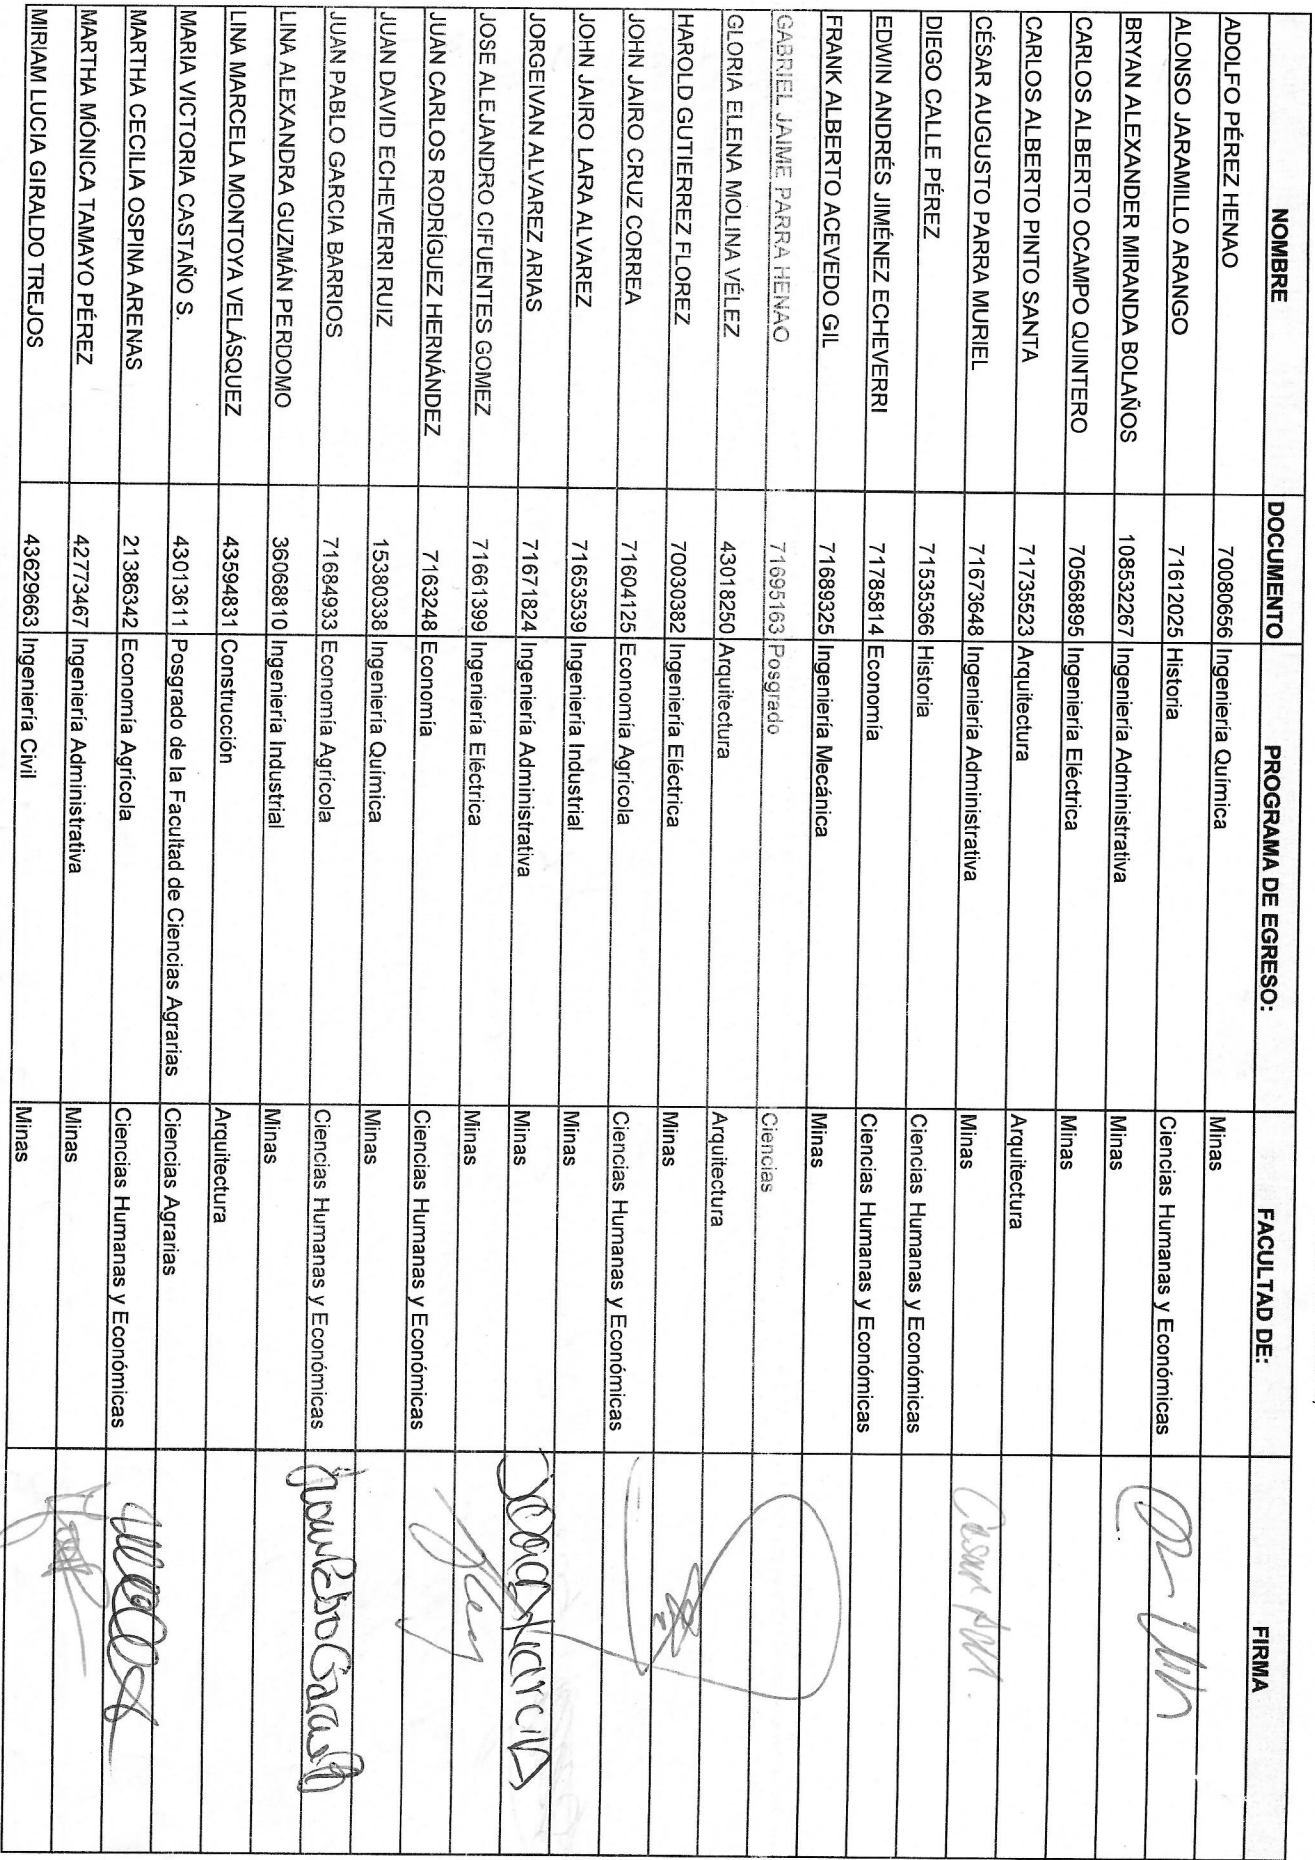 NOMBRE DOCUMENTO PROGRAMA DE EGRESO: FACULTAD DE: FIRMA
ADOLFO PÉREZ HENAO 70080656 Ingeniería Química Minas
ALONSO JARAMILLO ARANGO 71612025 Historia Ciencias Humanas y Económicas
BRYAN ALEXANDER MIRANDA BOLAÑOS 108532267 Ingeniería Administrativa Minas
CARLOS ALBERTO OCAMPO QUINTERO 70568895 Ingeniería Eléctrica Minas
CARLOS ALBERTO PINTO SANTA 71735523 Arquitectura Arquitectura
CÉSAR AUGUSTO PARRA MURIEL 71673648 Ingeniería Administrativa Minas
DIEGO CALLE PÉREZ 71535366 Historia Ciencias Humanas y Económicas
EDWIN ANDRÉS JIMÉNEZ ECHEVERRI 71785814 Economía Ciencias Humanas y Económicas
FRANK ALBERTO ACEVEDO GIL 71689325 Ingeniería Mecánica Minas
GABRIEL JAIME PARRA HENAO 71695163 Posgrado Ciencias
GLORIA ELENA MOLINA VÉLEZ 43018250 Arquitectura Arquitectura
HAROLD GUTIERREZ FLOREZ 70030382 Ingeniería Eléctrica Minas
JOHN JAIRO CRUZ CORREA 71604125 Economía Agrícola Ciencias Humanas y Económicas
JOHN JAIRO LARA ALVAREZ 71653539 Ingeniería Industrial Minas
JORGEIVAN ALVAREZ ARIAS 71671824 Ingeniería Administrativa Minas
JOSE ALEJANDRO CIFUENTES GOMEZ 71661399 Ingeniería Eléctrica Minas
JUAN CARLOS RODRÍGUEZ HERNÁNDEZ 7163248 Economía Ciencias Humanas y Económicas
JUAN DAVID ECHEVERRI RUIZ 15380338 Ingeniería Química Minas
JUAN PABLO GARCIA BARRIOS 71684933 Economía Agrícola Ciencias Humanas y Económicas Juan Pablo García B
LINA ALEXANDRA GUZMÁN PERDOMO 36068810 Ingeniería Industrial Minas
LINA MARCELA MONTOYA VELÁSQUEZ 43594831 Construcción Arquitectura
MARIA VICTORIA CASTAÑO S. 43013611 Posgrado de la Facultad de Ciencias Agrarias Ciencias Agrarias
MARTHA CECILIA OSPINA ARENAS 21386342 Economía Agrícola Ciencias Humanas y Económicas
MARTHA MÓNICA TAMAYO PÉREZ 42773467 Ingeniería Administrativa Minas
MIRIAM LUCIA GIRALDO TREJOS 43629663 Ingeniería Civil Minas